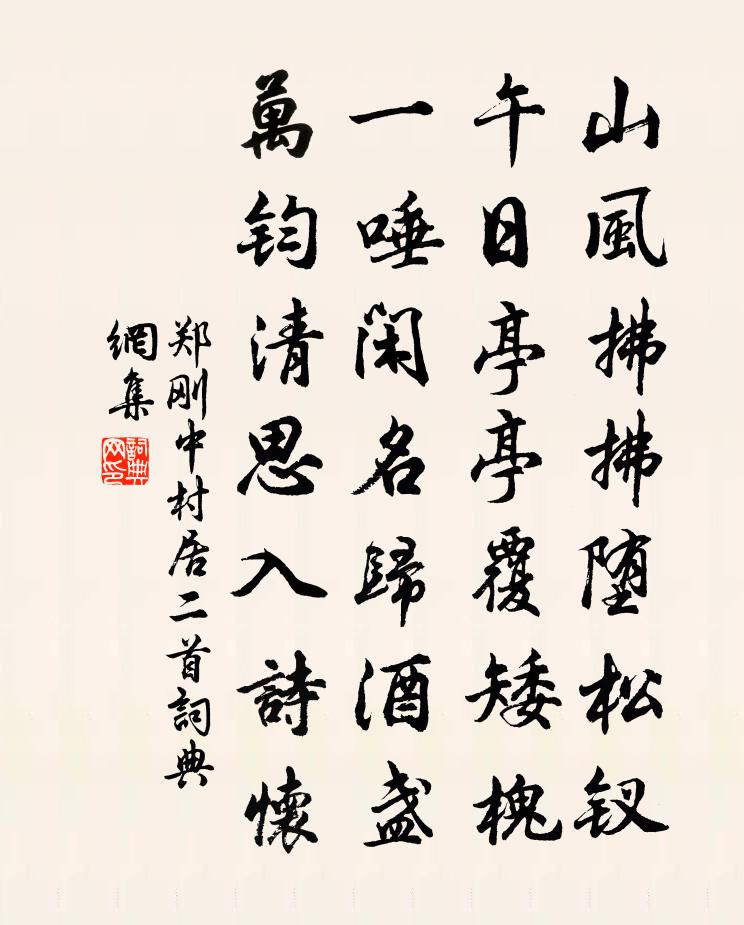 山風拂拂堕松钗
午日亭亭覆矮槐
一唾閑名歸酒盏
萬钧清思入詩懷
郑刚中村居二首詞典
網集
詞典网印